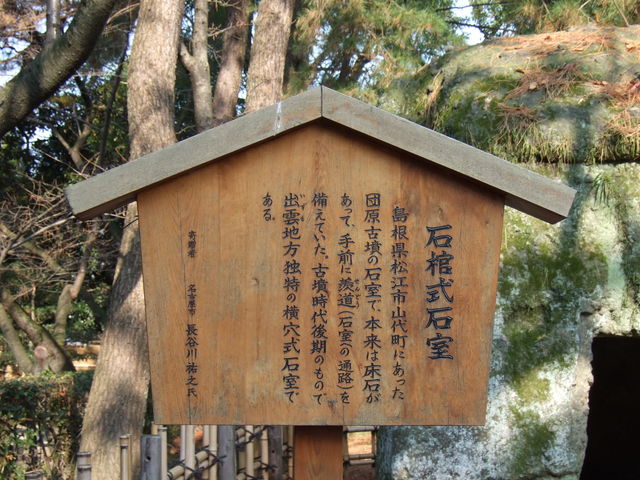 石棺式石室
島根県松江市山代町にあった
団原古墳の石室で、本来は床石が
あって、手前に羨道（石室への通路）を
備えていた。古墳時代後期のもので
出雲地方独特の横穴式石室で
ある。
寄贈者 名古屋市 長谷川祐之氏